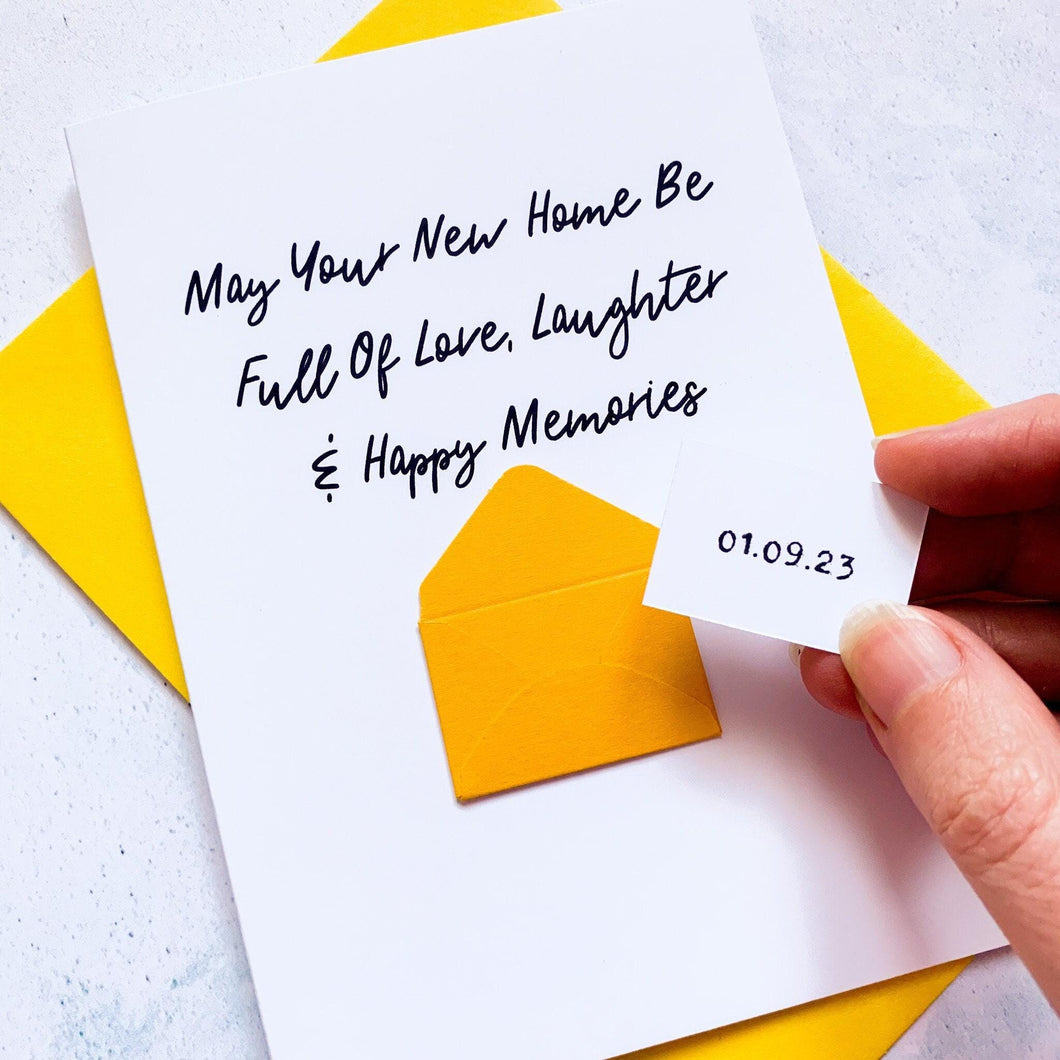 May Your New Home Be
Full Of Love, Laughter
& Happy Memories
01.09.23